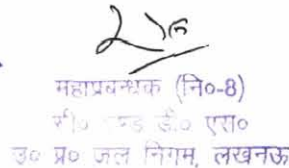 महाप्रबन्धक (नि०-8)
सी० एण्ड डी० एस०
उ० प्र० जल निगम, लखनऊ